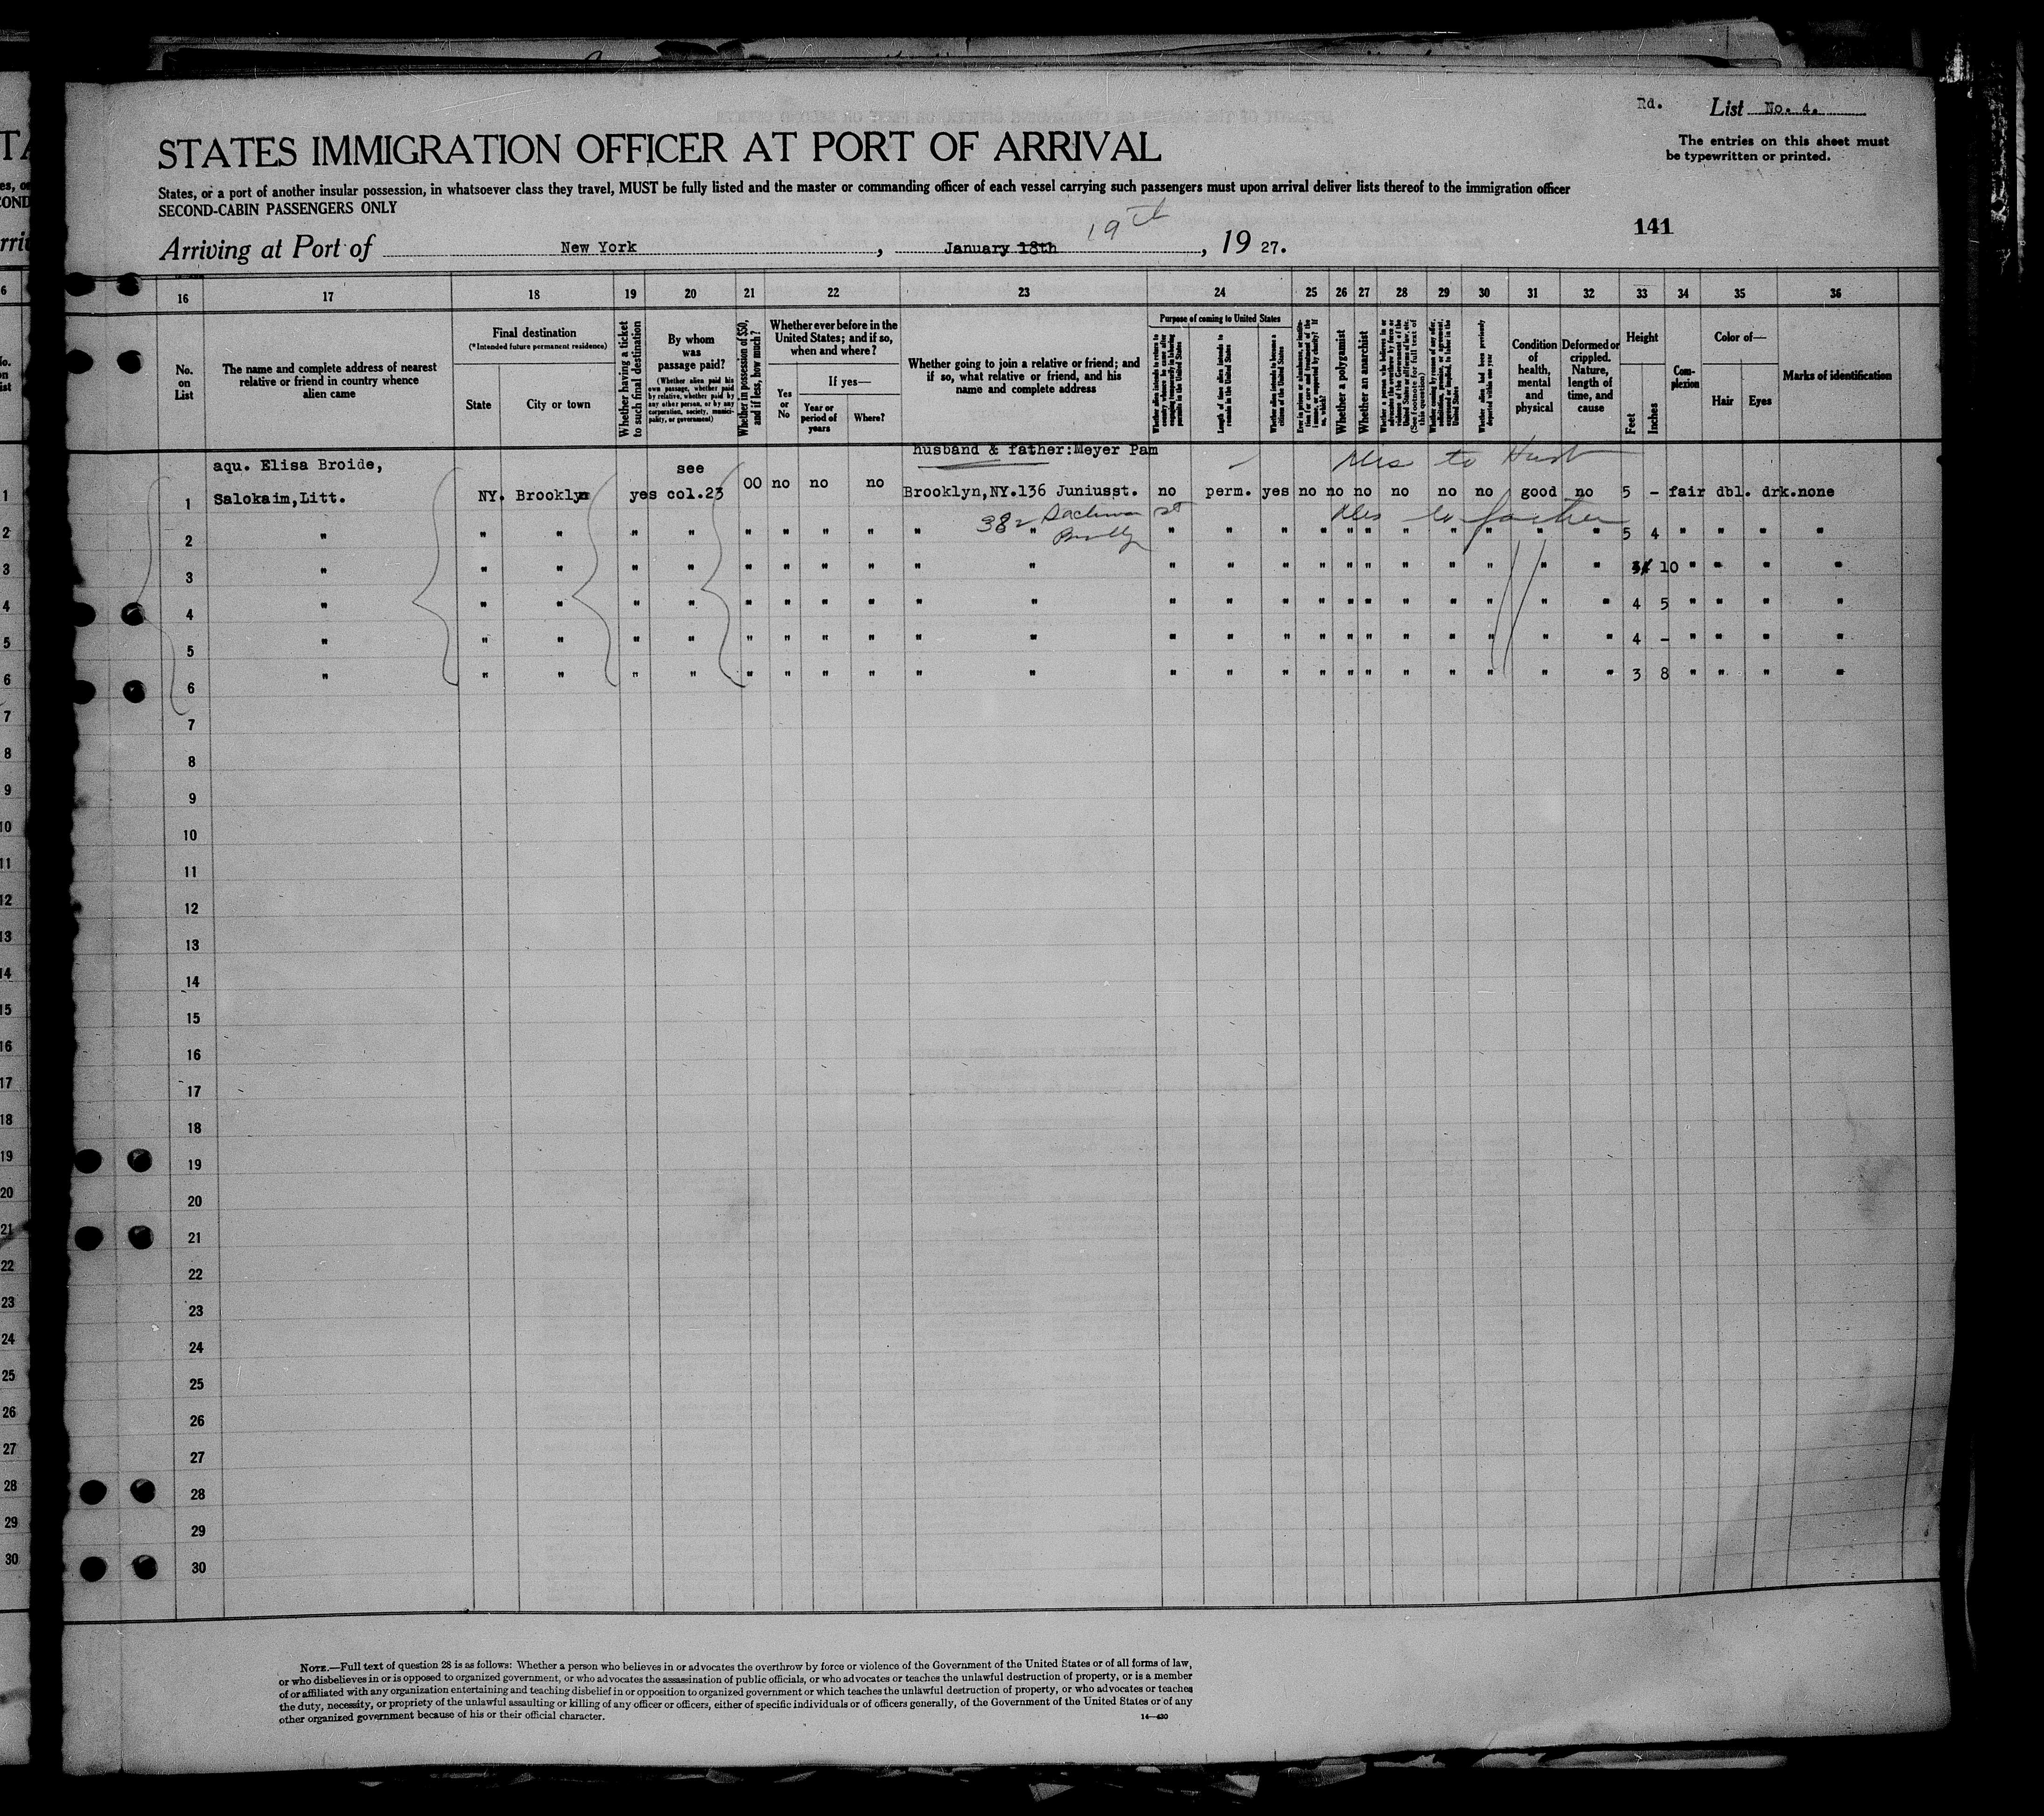 Rd. List No. 4.
The entries on this sheet must
be typewritten or printed.
STATES IMMIGRATION OFFICER AT PORT OF ARRIVAL
States, or a port of another insular possession, in whatsoever class they travel, MUST be fully listed and the master or commanding officer of each vessel carrying such passengers must upon arrival deliver lists thereof to the immigration officer
SECOND-CABIN PASSENGERS ONLY
141
Arriving at Port of New York, January 18th 19th, 19 27.
16 17 18 19 20 21 22 23 24 25 26 27 28 29 30 31 32 33 34 35 36
No. on List
The name and complete address of nearest
relative or friend in country whence
alien came
Final destination
(*Intended future permanent residence)
State
City or town
Whether having a ticket
to such final destination
By whom
was
passage paid?
(Whether alien paid his
own passage, whether paid
by relative, whether paid by
any other person, or by any
corporation, society, munici-
pality, or government)
Whether in possession of $50,
and if less, how much?
Whether ever before in the
United States; and if so,
when and where?
Yes or No
If yes—
Year or
period of
years
Where?
Whether going to join a relative or friend; and
if so, what relative or friend, and his
name and complete address
Purpose of coming to United States
Length of time alien intends to
remain in the United States
Whether alien intends to become a
citizen of the United States
Whether a polygamist
Whether an anarchist
(See footnote for full text of
this question)
Whether alien had been previously
deported within one year
Condition
of
health,
mental
and
physical
Deformed or
crippled.
Nature,
length of
time, and
cause
Height
Feet
Inches
Com-
plexion
Color of—
Hair
Eyes
Marks of identification
husband & father:Meyer Pam
aqu. Elisa Broide, see
1 Salokaim,Litt. NY. Brooklyn yes col.23 00 no no no Brooklyn,NY.136 Juniusst. no perm. yes no no no no no no good no 5 - fair dbl. drk.none
to Husb
382 st
to father
2 " " " " " " " " " " " " " " " " " " " " " " " 5 4 " " " "
3 " " " " " " " " " " " " " " " " " " " " " " " 10 " " " "
4 " " " " " " " " " " " " " " " " " " " " " " " 4 5 " " " "
5 " " " " " " " " " " " " " " " " " " " " " " " 4 - " " " "
6 " " " " " " " " " " " " " " " " " " " " " " " 3 8 " " " "
7
8
9
10
11
12
13
14
15
16
17
18
19
20
21
22
23
24
25
26
27
28
29
30
NOTE.—Full text of question 28 is as follows: Whether a person who believes in or advocates the overthrow by force or violence of the Government of the United States or of all forms of law,
or who disbelieves in or is opposed to organized government, or who advocates the assassination of public officials, or who advocates or teaches the unlawful destruction of property, or is a member
of or affiliated with any organization entertaining and teaching disbelief in or opposition to organized government or which teaches the unlawful destruction of property, or who advocates or teaches
the duty, necessity, or propriety of the unlawful assaulting or killing of any officer or officers, either of specific individuals or of officers generally, of the Government of the United States or of any
other organized government because of his or their official character.
14—430